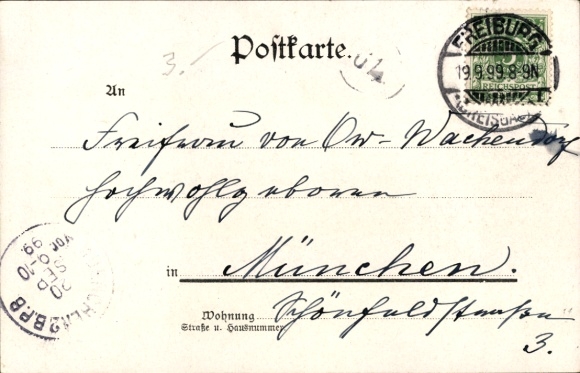 Postkarte.
3.
FREIBURG
5
19.9.99.8-9N
REICHSPOST
BREISGAU
An
Freifrau von Ow-Wachendorf
Hochwohlgeboren
in München.
Wohnung Schönfeldstrasse
Straße u. Hausnummer
3.
20
SEP
9-10
VOR.
99.
B.P.B